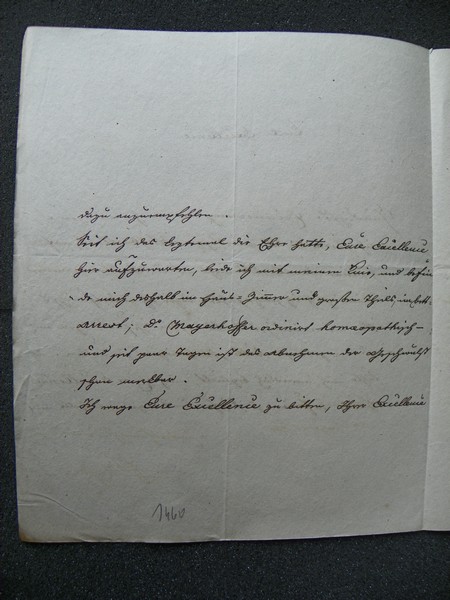 dazu anzuempfehlen.
Seit ich das Leztemal die Ehre hatte, Eure Excellence
hier aufzuwarten, leide ich mit meinem Knie, und befin-
de mich deshalb im Haus-Zimmer und großen Theils im bett
arrest; Dr. Mayerhoffer ordinirt homöopathisch -
und seit paar Tagen ist das Abnehmen der Geschwulst
schon merkbar.
Ich wage Eure Excellence zu bitten, Ihrer Excellence
1460